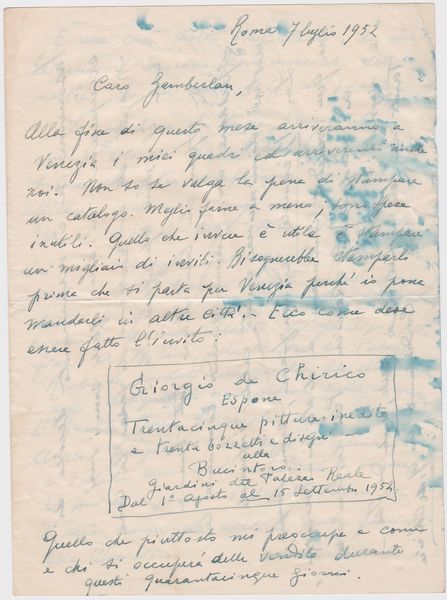 Roma 7 luglio 1952
Caro Zamberlan,
Alla fine di questo mese arriveranno a
Venezia i miei quadri ed arriveremo anche
noi. Non so se valga la pena di stampare
un catalogo. Meglio farne a meno, sono spese
inutili. Quello che invece è utile è stampare
un migliaio di inviti. Bisognerebbe stamparli
prima che si parta per Venezia perché io possa
mandarli in altre città. Ecco come deve
essere fatto l'invito:
Giorgio de Chirico
Espone
Trentacinque pitture inedite
e trenta bozzetti e disegni
alla
Bucintoro..
giardini del Palazzo Reale
Dal 1° agosto al 15 settembre 1952
Quello che piuttosto mi preoccupa è come
e chi si occuperà delle vendite durante
questi quarantacinque giorni.